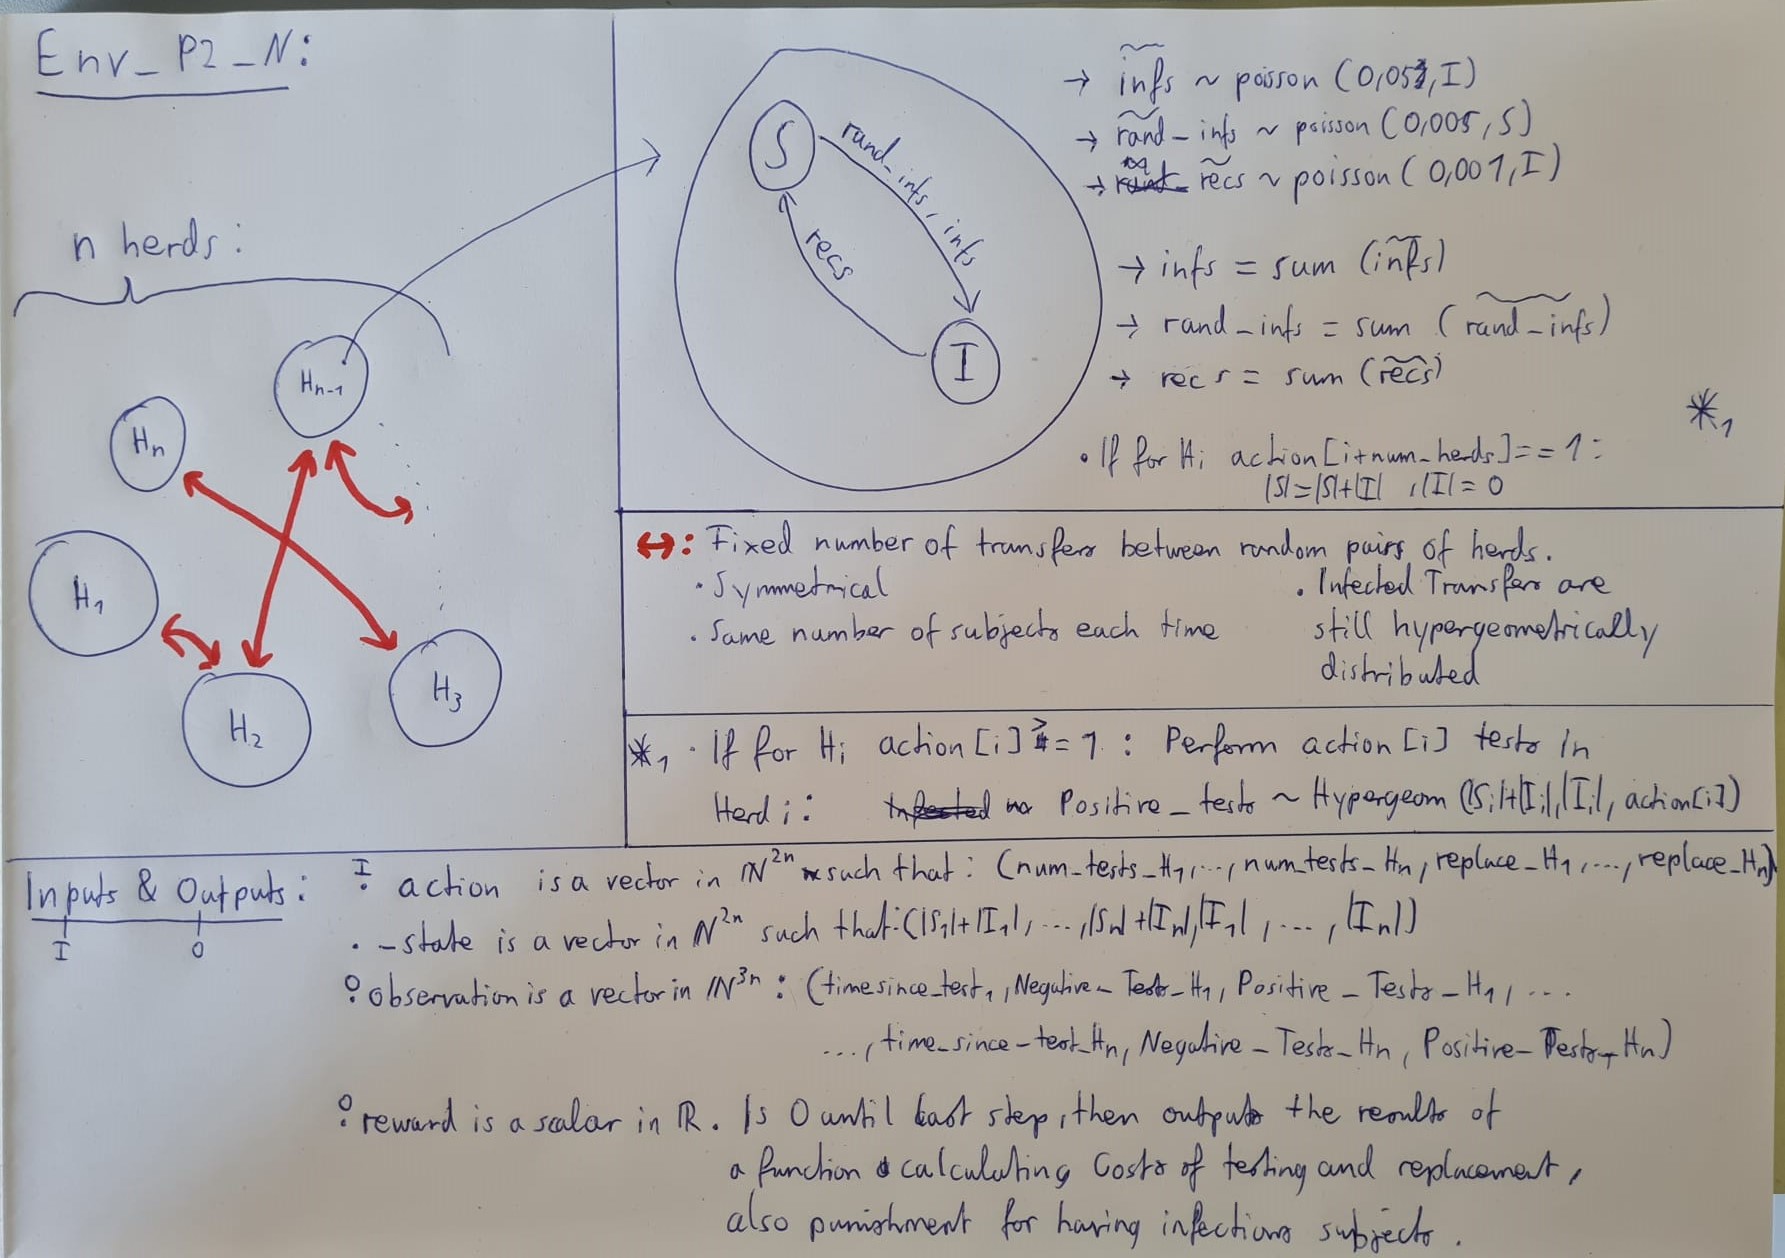 Env_P2_N:
n herds:
H1
H2
H3
Hn
Hn-1
S
I
rand_infs, infs
recs
→ infs ~ poisson (0,05,I)
→ rand_infs ~ poisson (0,005,S)
→ recs ~ poisson (0,001,I)
→ infs = sum (infs)
→ rand_infs = sum (rand_infs)
→ recs = sum (recs)
*1
• If for Hi action[i+num_herds]==1:
|S|=|S|+|I| , |I|=0
↔: Fixed number of transfers between random pairs of herds.
• Symmetrical
• Same number of subjects each time
• Infected Transfers are
still hypergeometrically
distributed
*1 • If for Hi action[i] >= 1 : Perform action[i] tests in
Herd i: Positive_tests ~ Hypergeom (|Si|+|Ii|,|Ii|, action[i])
Inputs & Outputs:
I
O
I
• action is a vector in ℕ^2n such that: (num_tests_H1,..., num_tests_Hn, replace_H1,..., replace_Hn)
• -state is a vector in ℕ^2n such that: (|S1|+|I1|, ..., |Sn|+|In|,|I1|, ..., |In|)
O
• observation is a vector in ℕ^3n : (timesince_test1, Negative_Tests_H1, Positive_Tests_H1, ...
..., time_since_test_Hn, Negative_Tests_Hn, Positive_Tests_Hn)
O
• reward is a scalar in ℝ. Is 0 until last step, then outputs the results of
a function calculating Costs of testing and replacement,
also punishment for having infectious subjects.